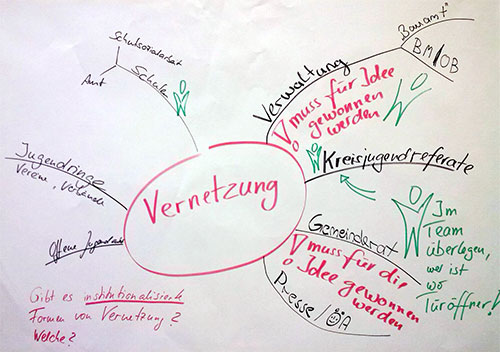 Schulsozialarbeit
Amt
Schule
Verwaltung
Bauamt
BM/OB
! muss für Idee
gewonnen
werden
Kreisjugendreferate
Jugendringe
Vereine, Verbände
Offene
Vernetzung
Gemeinderat
! muss für die
Idee gewonnen
werden
Presse / ÖA
Im
Team
überlegen,
wer ist
wo
Türöffner!
Gibt es institutionalisierte
Formen von Vernetzung?
Welche?